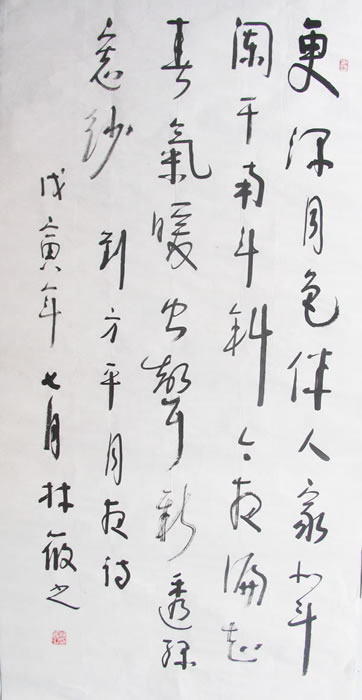 更深月色伴人家北斗
闌干南斗斜今夜偏知
春氣暖虫聲新透綠
窗紗 劉方平月夜詩
戊寅年七月林筱之